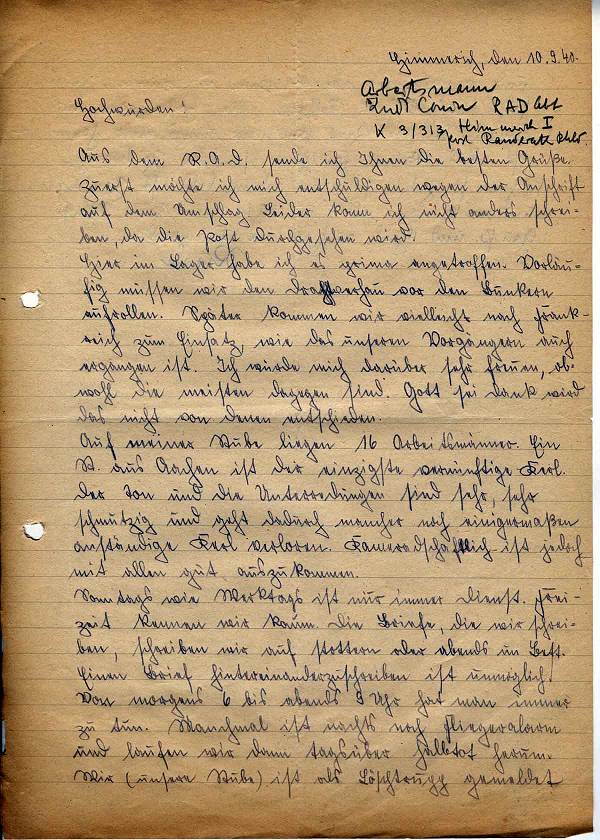 Himmerich, den 10.9.40.
Arbeitsmann
RAD Abt
Hochwürden!
K 3/313 Himmerich I
Post Randerath
Aus dem R.A.D. sende ich Ihnen die besten Grüße.
Zuerst möchte ich mich entschuldigen wegen der Anschrift
auf dem Umschlag. Leider kann ich nicht anders schrei-
ben, da die Post durchgesehen wird.
Hier im Lager habe ich es prima angetroffen. Vorläu-
fig müssen wir den Drahtverhau vor den Bunkern
aufrollen. Später kommen wir vielleicht nach Frank-
reich zum Einsatz, wie das unseren Vorgängern auch
ergangen ist. Ich würde mich darüber sehr freuen, ob-
wohl die meisten dagegen sind. Gott sei dank wird
das nicht von denen entschieden.
Auf meiner Stube liegen 16 Arbeitsmänner. Ein
St. aus Aachen ist der einzigste vernünftige Kerl.
Der Ton und die Unterredungen sind sehr, sehr
schmutzig und geht dadurch mancher noch einigermaßen
anständige Kerl verloren. Kameradschaftlich ist jedoch
mit allen gut auszukommen.
Sonntags wie Werktags ist nur immer Dienst. Frei-
zeit kennen wir kaum. Die Briefe, die wir schrei-
ben, schreiben wir auf stottern oder abends im Bett.
Einen Brief hintereinanderzuschreiben ist unmöglich.
Von morgens 6 bis abends 9 Uhr hat man immer
zu tun. Manchmal ist nachts noch Fliegeralarm
und laufen wir dann tagsüber halbtot herum.
Wir (unsere Stube) ist als Löschtrupp gemeldet